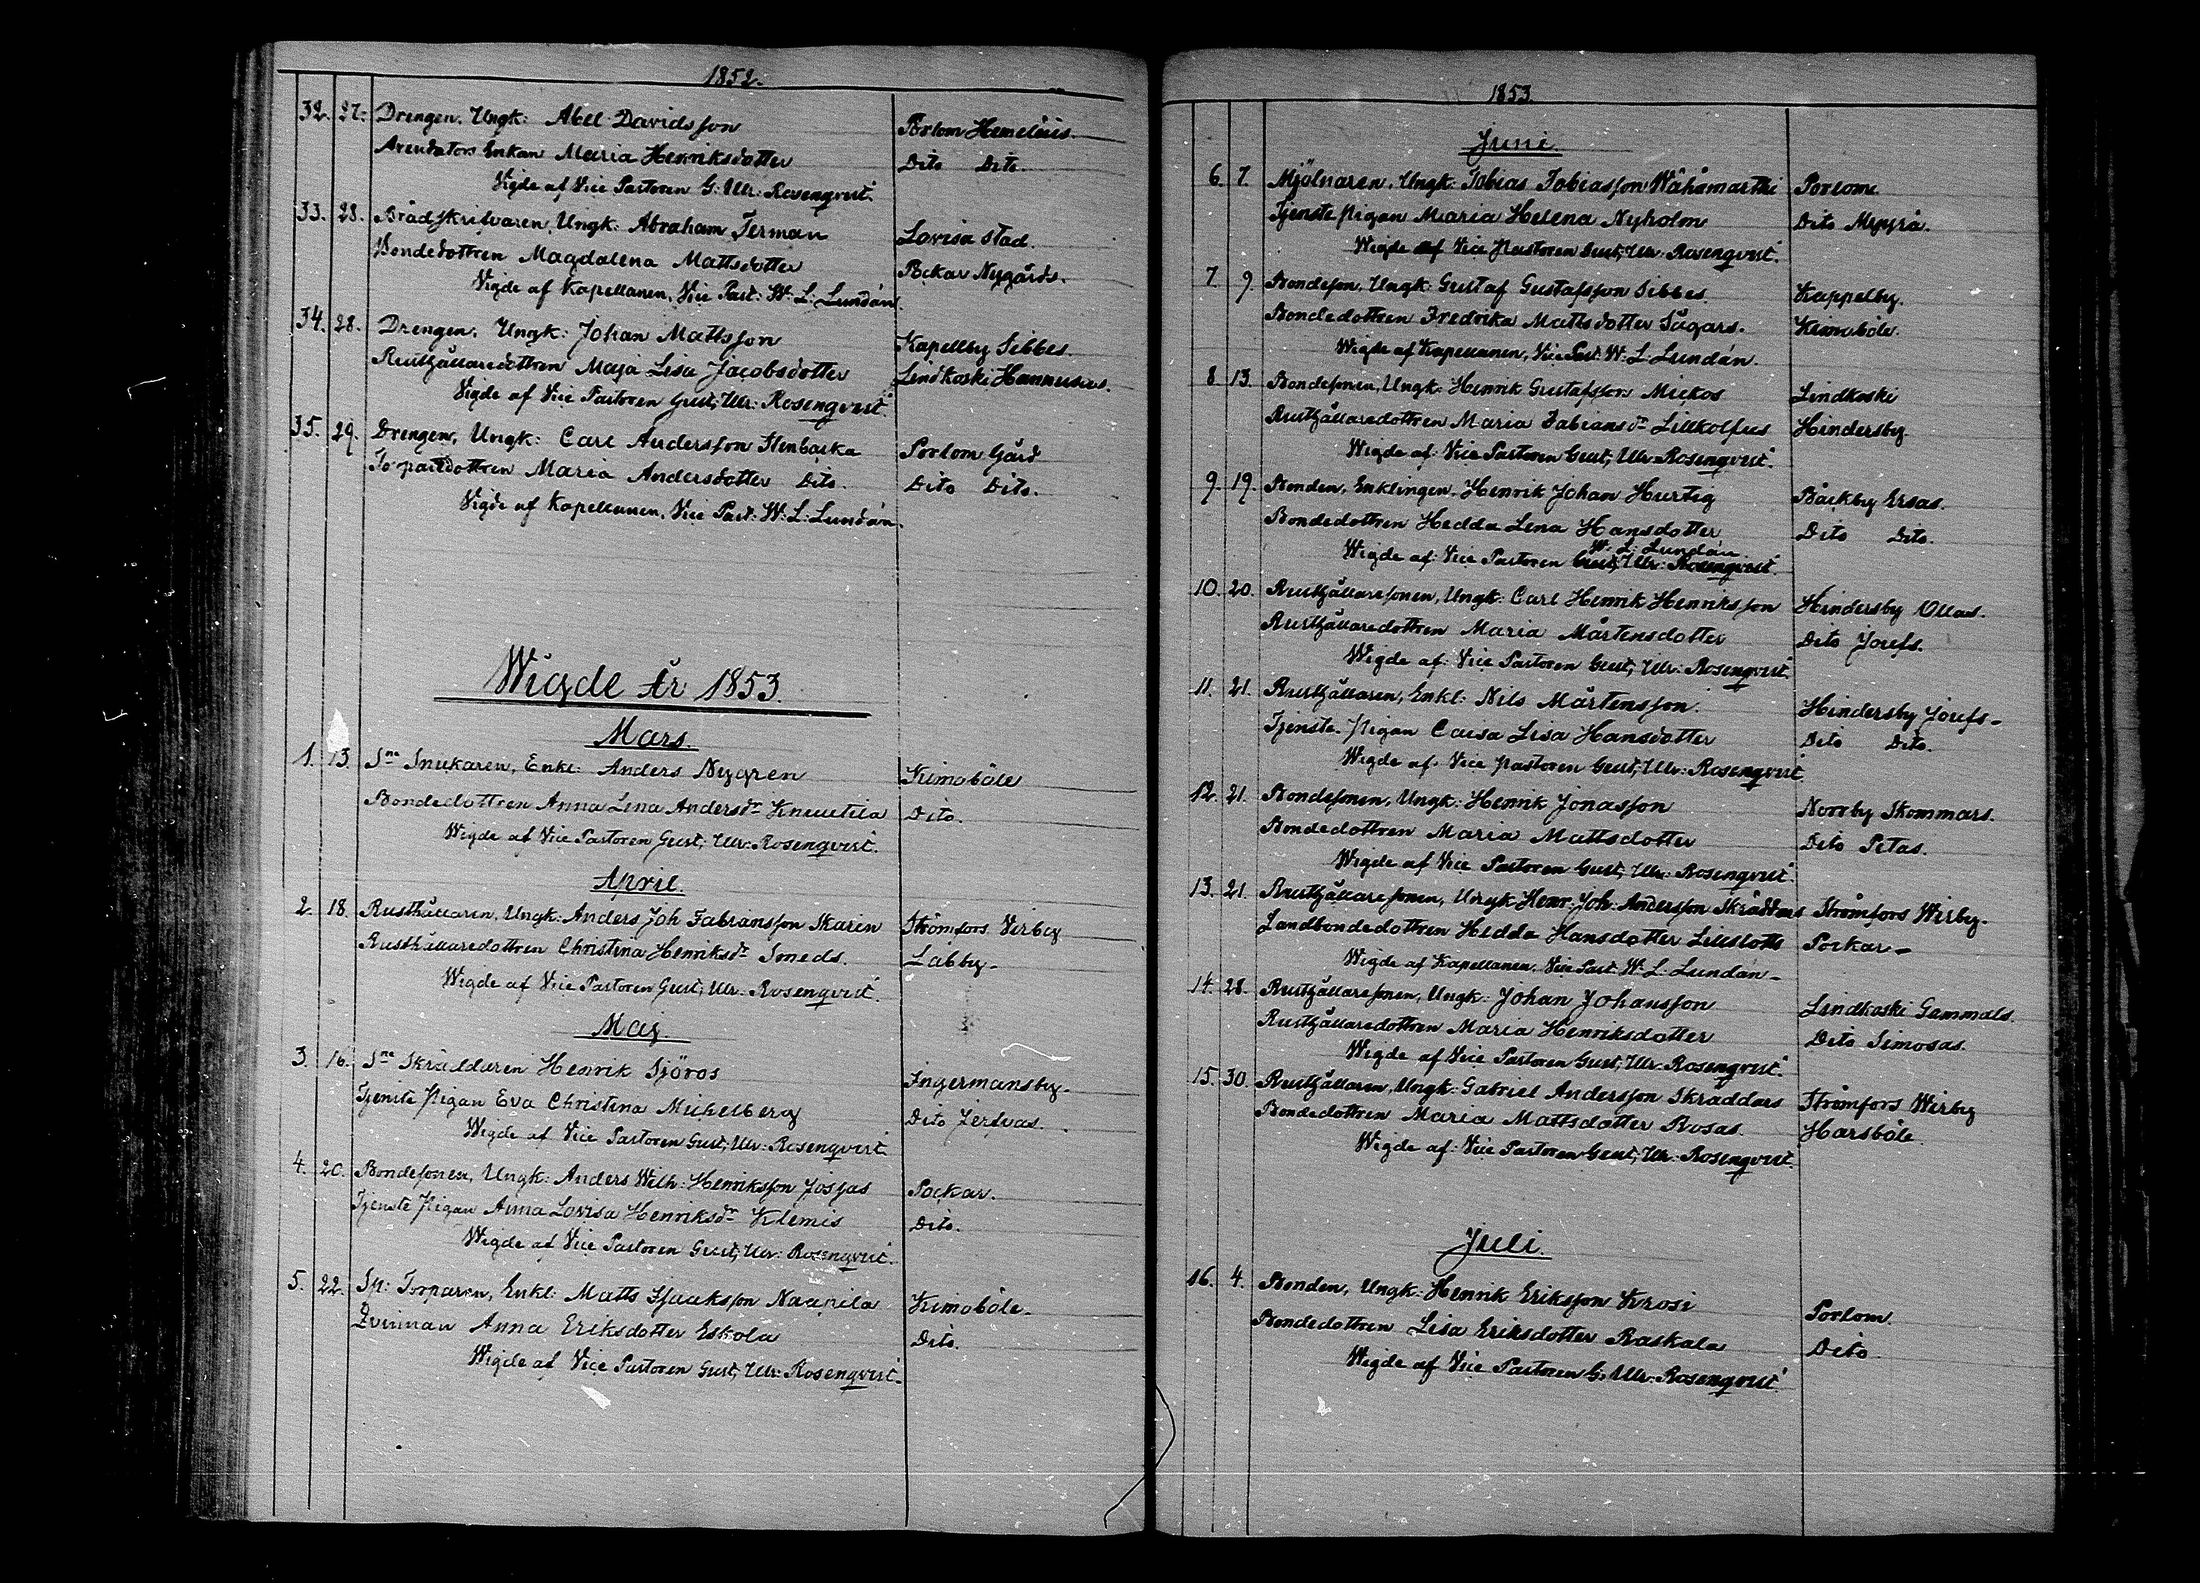 1852.
32. 27. Drengen, Ungk: Abel Davidsson Porlom Hemeläis.
Arendators Enkan Maria Henriksdotter Dito Dito.
Vigde af Vice Pastoren G: Ulr: Rosenqvist.
33. 28. Rådskrifvaren, Ungk: Abraham Ferman Lovisa stad.
Bondedottren Magdalena Mattsdotter Pockar Nygårds.
Vigde af Kapellanen, Vice Past: W: L: Lundán.
34. 28. Drengen, Ungk: Johan Mattsson Kapellby Sibbes.
Rusthållaredottren Maja Lisa Jacobsdotter Lindkoski Hannusas.
Vigde af Vice Pastoren Gust; Ulr: Rosenqvist.
35. 29. Drengen, Ungk: Carl Andersson Stenbacka Porlom Gård
Torparedottren Maria Andersdotter Dito. Dito Dito.
Vigde af Kapellanen, Vice Past: W: L: Lundán.
Wigde År 1853.
Mars.
1. 13. Sne Snickaren, Enkl: Anders Nygren Kimoböle
Bondedottren Anna Lena Andersdr Knuutila Dito.
Wigde af Vice Pastoren Gust; Ulr: Rosenqvist.
April.
2. 18. Rusthållaren, Ungk: Anders Joh Fabiansson Skarin Strömfors Virby
Rusthållaredottren Christina Henriksdr Smeds. Labby-
Wigde af Vice Pastoren Gust; Ulr: Rosenqvist.
Maj.
3. 16. Sne Skräddaren Henrik Sjöros Ingermansby-
Tjenste Pigan Eva Christina Michelberg Dito Jerfvas
Wigde af Vice Pastoren Gust; Ulr: Rosenqvist.
4. 20. Bondesonen, Ungk: Anders Wilh: Henriksson Jossas Pockar.
Tjenste Pigan Anna Lovisa Henriksdr Klemis Dito.
Wigde af Vice Pastoren Gust; Ulr: Rosenqvist.
5. 22. Sp: Torparen, Enkl: Matts Isaaksson Naapila Kimoböle-
Qvinnan Anna Eriksdotter Eskola Dito.
Wigde af Vice Pastoren Gust; Ulr: Rosenqvist.
1853.
Juni.
6. 7. Mjölnaren, Ungk: Tobias Tobiasson Wähämarthi Porlom
Tjenste Pigan Maria Helena Nyholm Dito Myyrä.
Wigde af Vice Pastoren Gust; Ulr: Rosenqvist.
7. 9. Bondeson, Ungk: Gustaf Gustafsson Sibbes. Kappelby.
Bondedottren Fredrika Mattsdotter Sågars. Kimoböle.
Wigde af Kapellanen, Vice Past: W: L: Lundán.
8. 13. Bondesonen, Ungk: Henrik Gustafsson Mickos Lindkoski
Rusthållaredottren Maria Fabiansdr Lillkolfus Hindersby.
Wigde af Vice Pastoren Gust; Ulr: Rosenqvist.
9. 19. Bonden, Enklingen, Henrik Johan Hurtig Bäckby Ersas.
Bondedottren Hedda Lena Hansdotter Dito Dito.
W: L: Lundán.
Wigde af Vice Pastoren Gust; Ulr: Rosenqvist.
10. 20. Rusthållaresonen, Ungk: Carl Henrik Henriksson Hindersby Ollas.
Rusthållaredottren Maria Mårtensdotter Dito Josefs.
Wigde af Vice Pastoren Gust; Ulr: Rosenqvist.
11. 21. Rusthållaren, Enkl: Nils Mårtensson. Hindersby Josefs-
Tjenste Pigan Caisa Lisa Hansdotter Dito Dito.
Wigde af Vice Pastoren Gust; Ulr: Rosenqvist
12. 21. Bondesonen, Ungk: Henrik Jonasson Norrby Skommars.
Bondedottren Maria Mattsdotter Dito Petas.
Wigde af Vice Pastoren Gust; Ulr: Rosenqvist.
13. 21. Rusthållaresonen, Ungk Henr: Joh: Andersson Skräddars Strömfors Wirby-
Landbondedottren Hedda Hansdotter Lillslotts Pockar-
Wigde af Kapellanen, Vice Past: W: L: Lundán-
14. 28. Rusthållaresonen, Ungk: Johan Johansson Lindkoski Gammals.
Rusthållaredottren Maria Henriksdotter Dito Simosas.
Wigde af Vice Pastoren Gust; Ulr: Rosenqvist.
15. 30. Rusthållaren, Ungk: Gabriel Andersson Skräddars Strömfors Wirby
Bondedottren Maria Mattsdotter Rosas. Harsböle.
Wigde af Vice Pastoren Gust; Ulr: Rosenqvist.
Juli.
16. 4. Bonden, Ungk: Henrik Eriksson Krosi Porlom.
Bondedottren Lisa Eriksdotter Raskala Dito
Wigde af Vice Pastoren G. Ulr: Rosenqvist